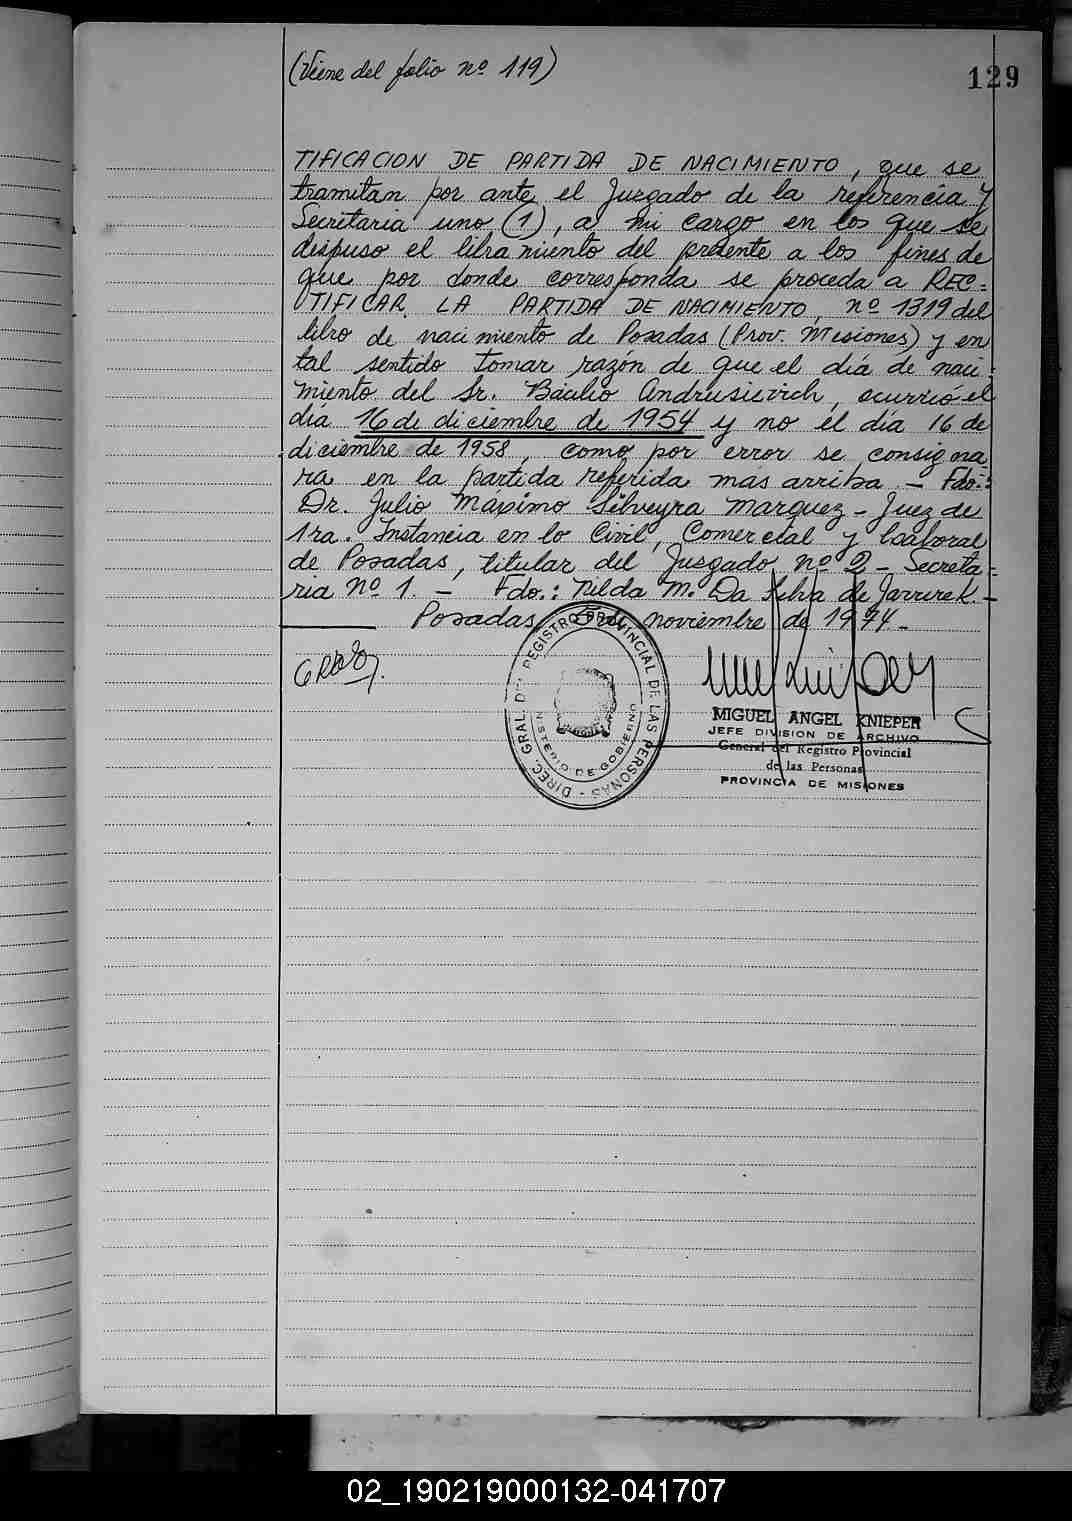 (Viene del folio nº 119)
129
TIFICACION DE PARTIDA DE NACIMIENTO, que se
tramitan por ante el Juzgado de la referencia y
Secretaria uno (1), a mi cargo en los que se
dispuso el libramiento del presente a los fines de
que por donde corresponda se proceda a REC=
TIFICAR LA PARTIDA DE NACIMIENTO, nº 1319 del
libro de nacimiento de Posadas (Prov. Misiones) y en
tal sentido tomar razón de que el día de naci-
miento del Sr. Basilio Andrusievich, ocurrió el
día 16 de diciembre de 1954 y no el día 16 de
diciembre de 1958, como por error se consigna
ra en la partida referida más arriba. - Fdo.:
Dr. Julio Máximo Silveyra Marquez - Juez de
1ra. Instancia en lo Civil, Comercial y Laboral
de Posadas, titular del Juzgado nº 2 - Secreta=
ria Nº 1. - Fdo.: Nilda M. Da Silva de Jarrurek. -
Posadas, noviembre de 1974. -
DIREC. GRAL. DEL REGISTRO PROVINCIAL DE LAS PERSONAS
MINISTERIO DE GOBIERNO
MIGUEL ANGEL KNIEPER
JEFE DIVISION DE ARCHIVO
General del Registro Provincial
de las Personas
PROVINCIA DE MISIONES
02_190219000132-041707